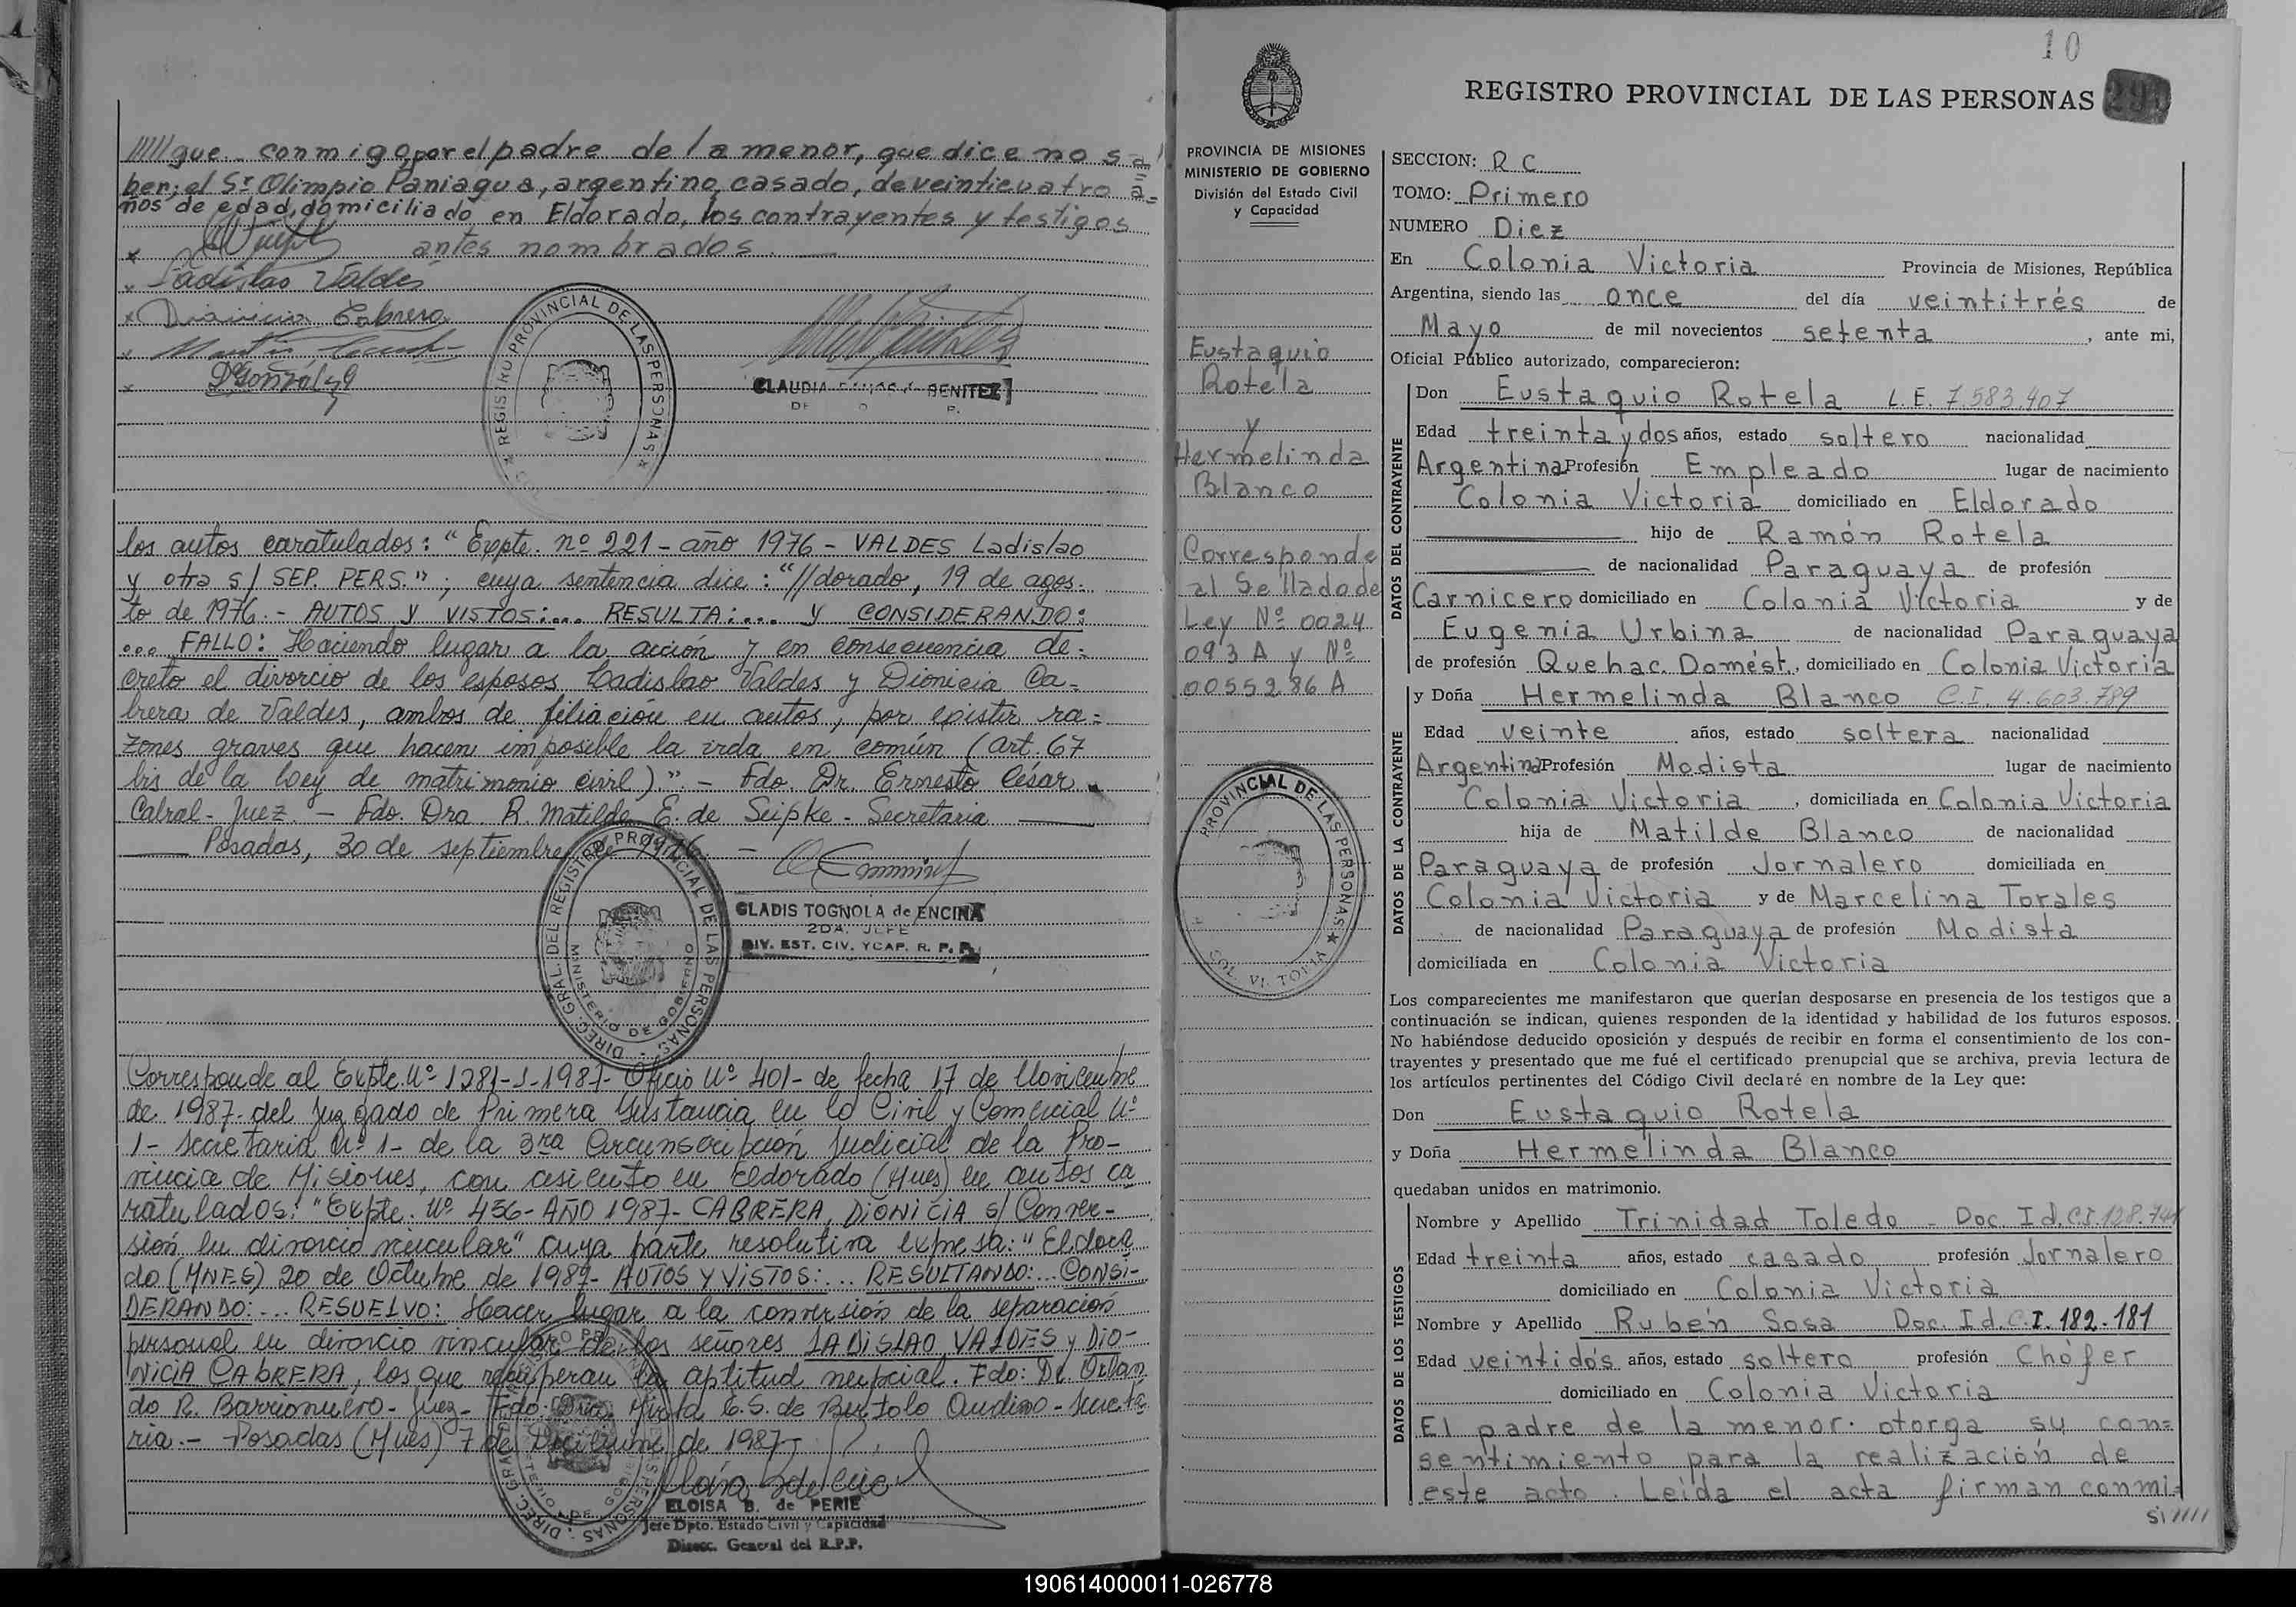 /////gue conmigo, por el padre de la menor, que dice no sa
ber; el Sr Olimpio Paniagua, argentino, casado, de veinticuatro a=
ños de edad, domiciliado en Eldorado, los contrayentes y testigos
antes nombrados.
x Ladislao Valdés
x Dionicia Cabrera
x
x González
REGISTRO PROVINCIAL DE LAS PERSONAS
CLAUDIA BENITEZ
los autos caratulados: "Expte. nº 221 - año 1976 - VALDES Ladislao
y otra s/ SEP. PERS."; cuya sentencia dice: "//dorado, 19 de agos-
to de 1976.- AUTOS Y VISTOS:... RESULTA:... Y CONSIDERANDO:
... FALLO: Haciendo lugar a la acción y en consecuencia de-
creto el divorcio de los esposos Ladislao Valdes y Dionicia Ca-
brera de Valdes, ambos de filiación en autos, por existir ra-
zones graves que hacen imposible la vida en común (art. 67
bis de la Ley de matrimonio civil)". - Fdo. Dr. Ernesto César
Cabral - Juez. - Fdo. Dra. R. Matilde E. de Seipke - Secretaria
Posadas, 30 de septiembre de 1976 -
DIREC. GRAL. DEL REGISTRO PROVINCIAL DE LAS PERSONAS
MINISTERIO DE GOBIERNO
GLADIS TOGNOLA de ENCINA
2DA. JEFE
DIV. EST. CIV. Y CAP. R. P. P.
Corresponde al Expte. Nº 1281-J-1987- Oficio Nº 401- de fecha 17 de Noviembre
de 1987- del Juzgado de Primera Instancia en lo Civil y Comercial Nº
1- Secretaria Nº 1- de la 3ra Circunscripción Judicial de la Pro-
vincia de Misiones, con asiento en Eldorado (Mnes) en autos ca
ratulados: "Expte. Nº 456- AÑO 1987- CABRERA, DIONICIA s/ Conver-
sión en divorcio vincular" cuya parte resolutiva expresa: "Eldora
do (MNES) 20 de Octubre de 1987- AUTOS Y VISTOS:... RESULTANDO:... CONSI-
DERANDO:... RESUELVO: Hacer lugar a la conversión de la separación
personal en divorcio vincular de los señores LADISLAO VALDÉS y DIO-
NICIA CABRERA, los que recuperan la aptitud nupcial. Fdo: Dr. Orlan
do R. Barrionuevo- Juez- Fdo: Dra. Mirta E.S. de Bertolo Audino - Secreta
ria.- Posadas (Mnes) 7 de Diciembre de 1987-
ELOISA B. de PERIE
Jefe Dpto. Estado Civil y Capacidad
Direcc. General del R.P.P.
10
REGISTRO PROVINCIAL DE LAS PERSONAS
PROVINCIA DE MISIONES
MINISTERIO DE GOBIERNO
División del Estado Civil
y Capacidad
Eustaquio
Rotela
y
Hermelinda
Blanco
Corresponde
al Sellado de
Ley Nº 0024
093 A y Nº
0055286 A
PROVINCIAL DE LAS PERSONAS
COL. VICTORIA
SECCION: R C
TOMO: Primero
NUMERO Diez
En Colonia Victoria Provincia de Misiones, República
Argentina, siendo las once del día veintitrés de
Mayo de mil novecientos setenta, ante mi,
Oficial Público autorizado, comparecieron:
DATOS DEL CONTRAYENTE
Don Eustaquio Rotela L.E. 7.583.407
Edad treinta y dos años, estado soltero nacionalidad
Argentina Profesión Empleado lugar de nacimiento
Colonia Victoria domiciliado en Eldorado
hijo de Ramón Rotela
de nacionalidad Paraguaya de profesión
Carnicero domiciliado en Colonia Victoria y de
Eugenia Urbina de nacionalidad Paraguaya
de profesión Quehac. Domést., domiciliado en Colonia Victoria
DATOS DE LA CONTRAYENTE
y Doña Hermelinda Blanco C.I. 4.603.789
Edad veinte años, estado soltera nacionalidad
Argentina Profesión Modista lugar de nacimiento
Colonia Victoria, domiciliada en Colonia Victoria
hija de Matilde Blanco de nacionalidad
Paraguaya de profesión Jornalero domiciliada en
Colonia Victoria y de Marcelina Torales
de nacionalidad Paraguaya de profesión Modista
domiciliada en Colonia Victoria
Los comparecientes me manifestaron que querían desposarse en presencia de los testigos que a
continuación se indican, quienes responden de la identidad y habilidad de los futuros esposos.
No habiéndose deducido oposición y después de recibir en forma el consentimiento de los con-
trayentes y presentado que me fué el certificado prenupcial que se archiva, previa lectura de
los artículos pertinentes del Código Civil declaré en nombre de la Ley que:
Don Eustaquio Rotela
y Doña Hermelinda Blanco
quedaban unidos en matrimonio.
DATOS DE LOS TESTIGOS
Nombre y Apellido Trinidad Toledo - Doc. Id. C.I. 128.741
Edad treinta años, estado casado profesión Jornalero
domiciliado en Colonia Victoria
Nombre y Apellido Rubén Sosa Doc. Id. C.I. 182.181
Edad veintidós años, estado soltero profesión Chófer
domiciliado en Colonia Victoria
El padre de la menor otorga su con=
sentimiento para la realización de
este acto. Leída el acta firman conmi=
si/////
190614000011-026778